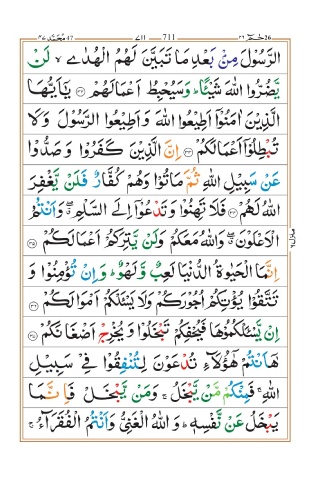 محمد ٤٧ ٧١١ 711 حٰمٓ ٢٦
الرَّسُوْلَ مِنْۢ بَعْدِ مَا تَبَيَّنَ لَهُمُ الْهُدٰى ۙ لَنْ
يَّضُرُّوا اللّٰهَ شَيْـًٔا ؕ وَسَيُحْبِطُ اَعْمَالَهُمْ ﴿۳۲﴾ يٰۤاَيُّهَا
الَّذِيْنَ اٰمَنُوْۤا اَطِيْعُوا اللّٰهَ وَاَطِيْعُوا الرَّسُوْلَ وَلَا
تُبْطِلُوْۤا اَعْمَالَكُمْ ﴿۳۳﴾ اِنَّ الَّذِيْنَ كَفَرُوْا وَصَدُّوْا
عَنْ سَبِيْلِ اللّٰهِ ثُمَّ مَاتُوْا وَهُمْ كُفَّارٌ فَلَنْ يَّغْفِرَ
اللّٰهُ لَهُمْ ﴿۳۴﴾ فَلَا تَهِنُوْا وَتَدْعُوْۤا اِلَى السَّلْمِ ۖ وَاَنْتُمُ
الْاَعْلَوْنَ ۖ وَاللّٰهُ مَعَكُمْ وَلَنْ يَّتِرَكُمْ اَعْمَالَكُمْ ﴿۳۵﴾
اِنَّمَا الْحَيٰوةُ الدُّنْيَا لَعِبٌ وَّلَهْوٌ ؕ وَاِنْ تُؤْمِنُوْا وَ
تَتَّقُوْا يُؤْتِكُمْ اُجُوْرَكُمْ وَلَا يَسْـَٔلْكُمْ اَمْوَالَكُمْ ﴿۳۶﴾
اِنْ يَّسْـَٔلْكُمُوْهَا فَيُحْفِكُمْ تَبْخَلُوْا وَيُخْرِجْ اَضْغَانَكُمْ ﴿۳۷﴾
هٰۤاَنْتُمْ هٰۤؤُلَآءِ تُدْعَوْنَ لِتُنْفِقُوْا فِيْ سَبِيْلِ
اللّٰهِ ۚ فَمِنْكُمْ مَّنْ يَّبْخَلُ ۚ وَمَنْ يَّبْخَلْ فَاِنَّمَا
يَبْخَلُ عَنْ نَّفْسِهٖ ؕ وَاللّٰهُ الْغَنِيُّ وَاَنْتُمُ الْفُقَرَآءُ ۚ